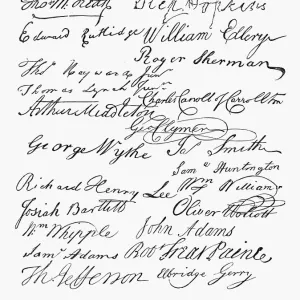 Thos M:Kean Step Hopkins
Edward Rutledge William Ellery
Roger Sherman
Thos Heyward Junr
Thomas Lynch Junr
Charles Carroll of Carrollton
Arthur Middleton
Geo Clymer
George Wythe Jas Smith
Saml Huntington
Richard Henry Lee Wm Williams
Josiah Bartlett Oliver Wolcott
Wm Whipple John Adams
Saml Adams Robt Treat Paine
Th Jefferson Elbridge Gerry